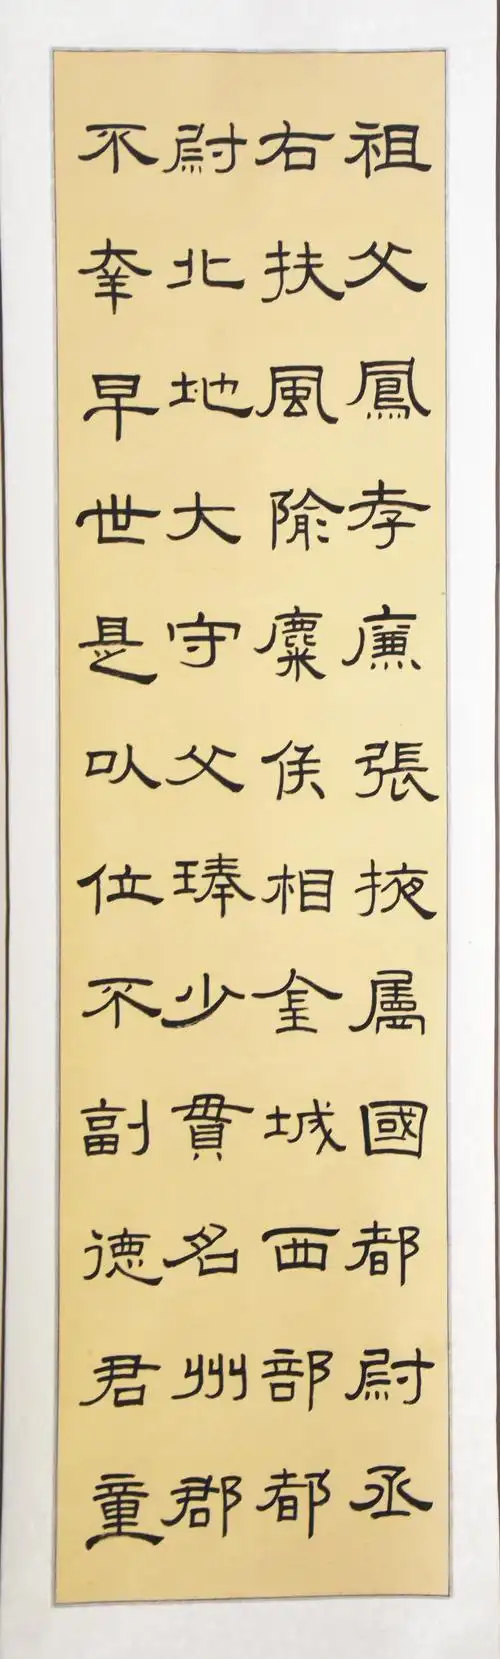 祖父鳳孝廉張掖屬國都尉丞
右扶風隃麋侯相金城西部都
尉北地大守父琫少貫名州郡
不幸早世是以位不副德君童